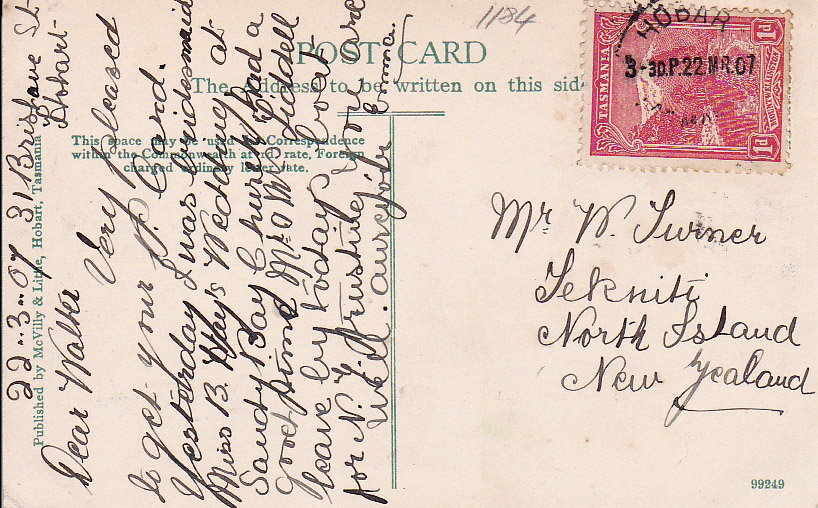 1184
POST CARD
The Address to be written on this side
This space may be used for Correspondence
within the Commonwealth at 1d. rate, Foreign
charged ordinary letter rate.
HOBAR
3-30.P.22 MR.07
TASMANIA
1d
1d
Mr W. Turner
Tekuiti
North Island
New Zealand
99249
Published by McVilly & Little, Hobart, Tasmania
22..3..07 31 Brisbane St
Hobart-
Dear Walter Very pleased
to get your P. Card.
Yesterday I was bridesmaid
Miss B. Hay's Wedding at
Sandy Bay Church had a
good time Mr & Mrs Liddell
leave by today's boat
for N. Z. Trusting you are
well. aurevoir Emma.